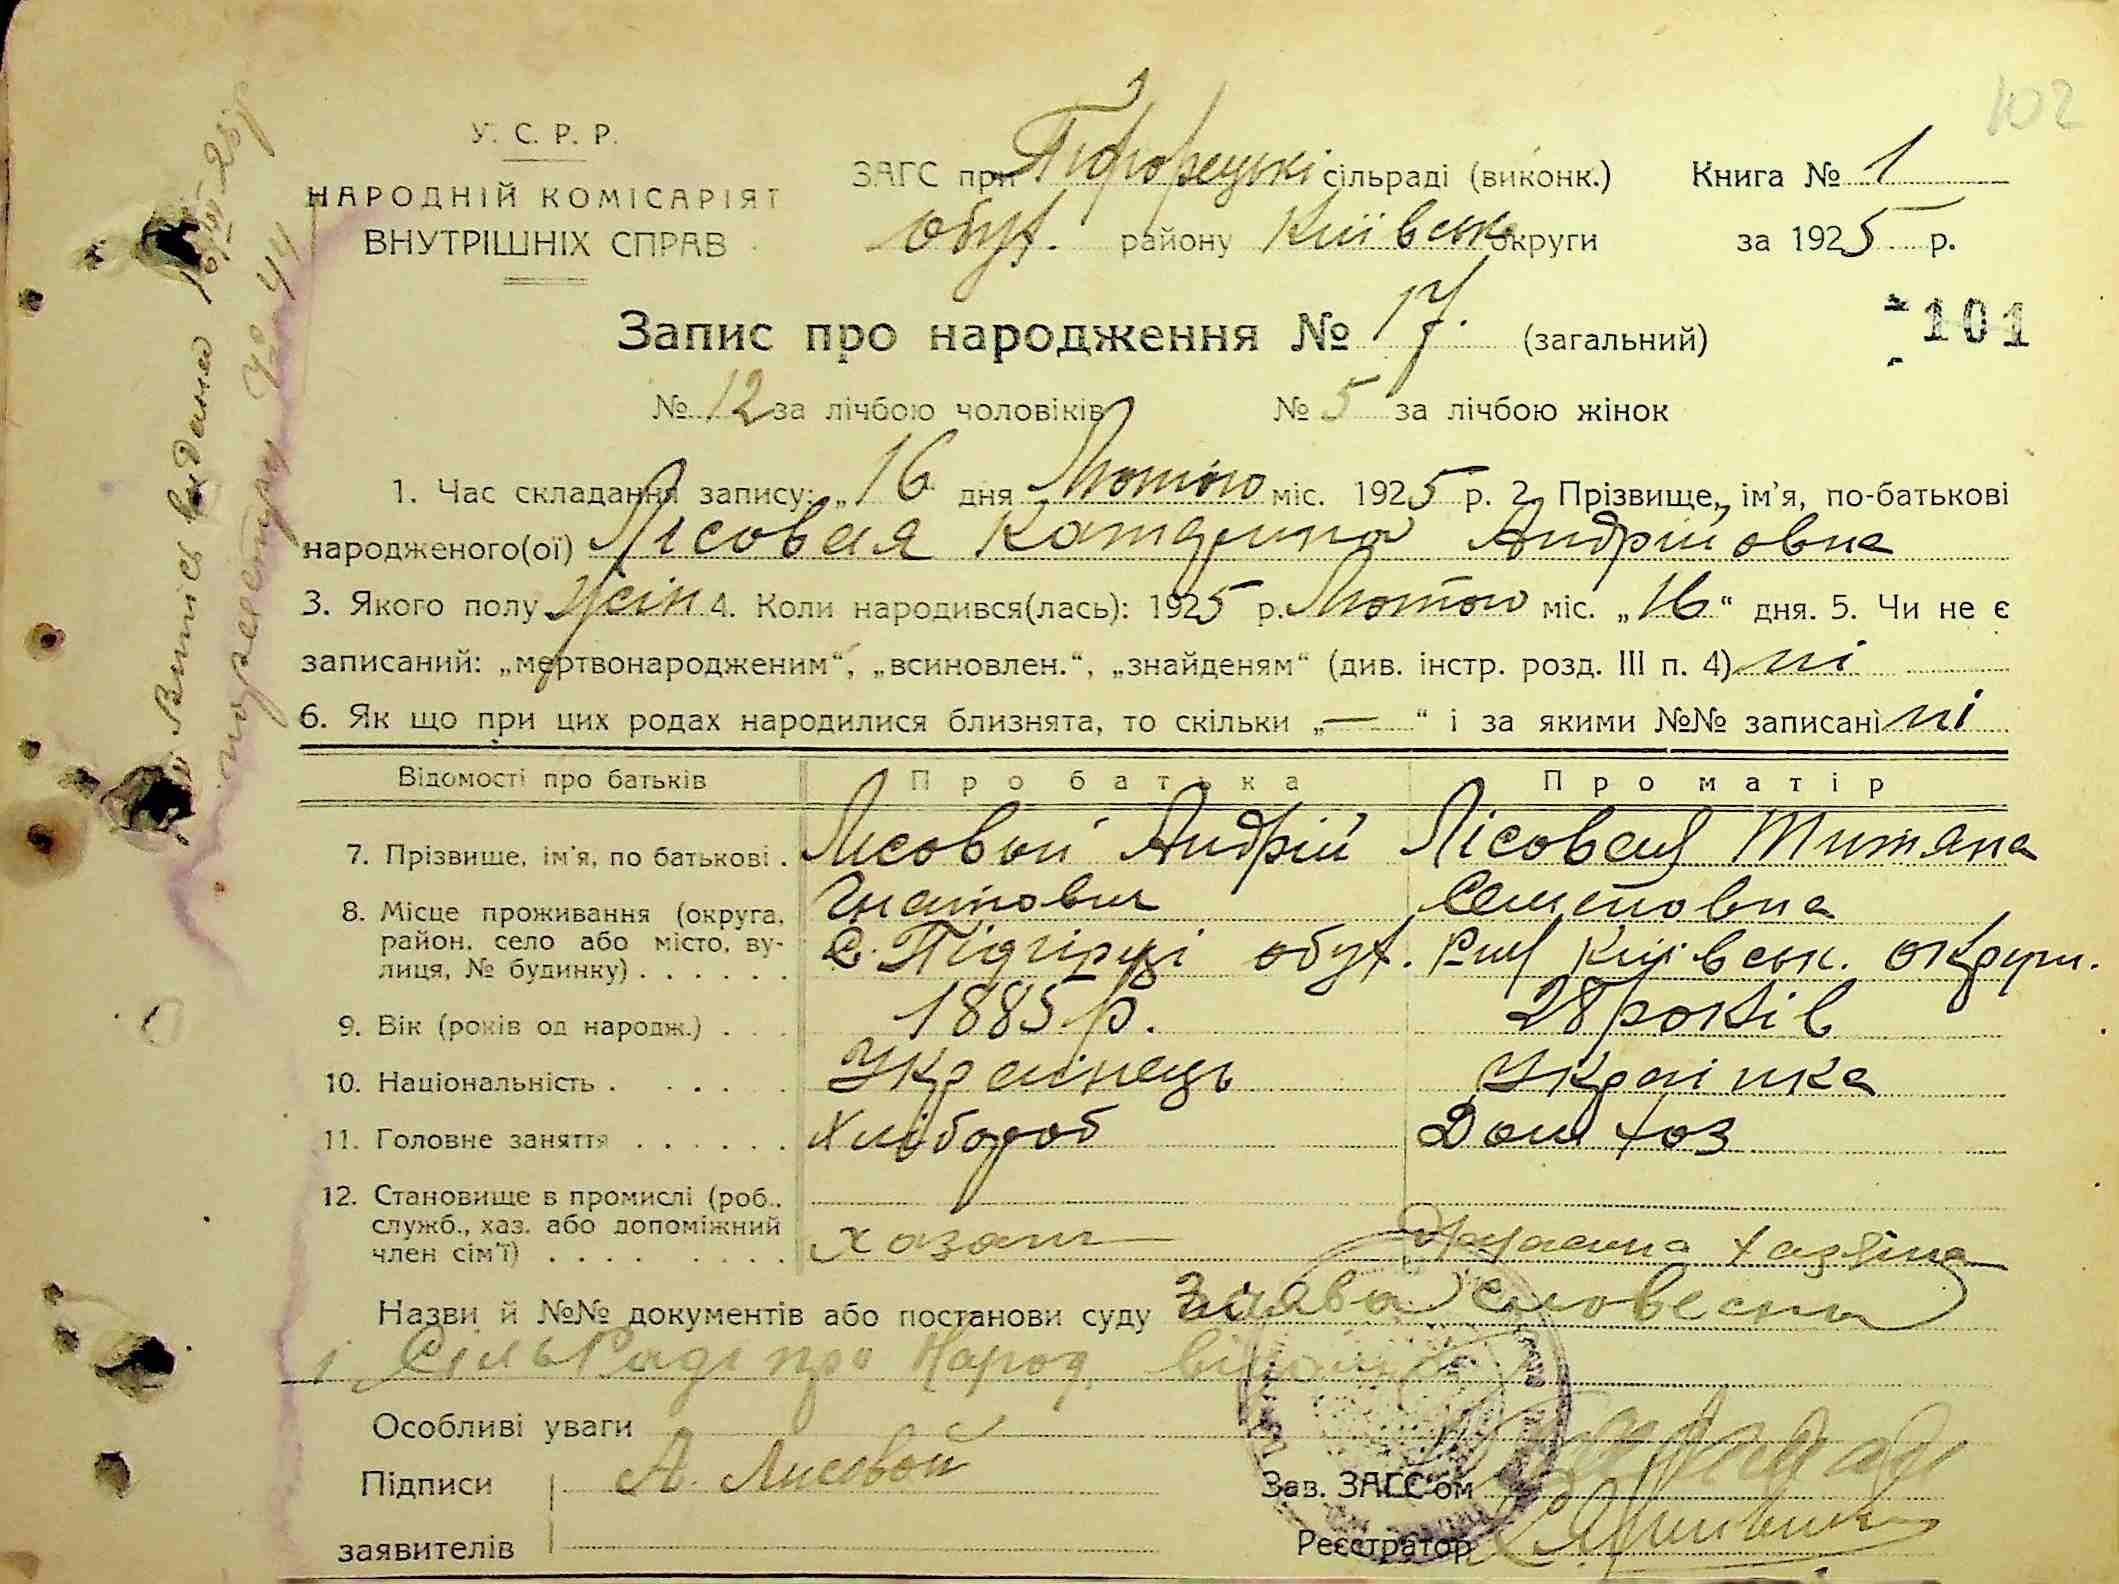 102
У. С. Р. Р.
НАРОДНІЙ КОМІСАРІЯТ
ВНУТРІШНІХ СПРАВ
ЗАГС при сільраді (виконк.) Книга № 1
обух. району Київськ округи за 1925 р.
Запис про народження № 17. (загальний)
101
№ 12 за лічбою чоловіків № 5 за лічбою жінок
1. Час складання запису: „16 дня Лютого міс. 1925 р. 2. Прізвище, ім’я, по-батькові
народженого(ої) Лісовая Катерина Андрійовна
3. Якого полу жін 4. Коли народився(лась): 1925 р. Лютого міс. „16“ дня. 5. Чи не є
записаний: „мертвонародженим“, „всиновлен.“, „знайденям“ (див. інстр. розд. III п. 4) ні
6. Як що при цих родах народилися близнята, то скільки „—“ і за якими №№ записані ні
Відомості про батьків Про батька Про матір
7. Прізвище, ім’я, по батькові . Лісовый Андрій Лісовая Титяна
Гнатович Семеновна
8. Місце проживання (округа,
район, село або місто, ву-
лиця, № будинку) . . . . . .
с. Підгірці обух. Київськ. округи.
9. Вік (років од народж.) . . . 1885 р. 28 років
10. Національність . . . . . Українець Українка
11. Головне заняття . . . . . . Хлібороб Дом хоз
12. Становище в промислі (роб.,
служб., хаз. або допоміжний
член сім’ї) . . . . . . . .
хазаин хазяіна
Назви й №№ документів або постанови суду Заява словесна
СільРаді про Народ.
Особливі уваги
Підписи А. Лисовой Зав. ЗАГС’ом
заявителів Реєстратор
Витись видана